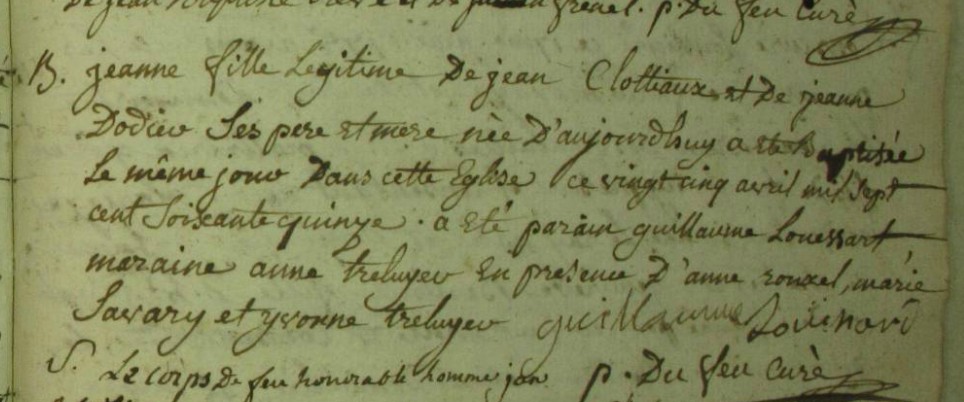 De jean et De p. Du feu Curè
B. jeanne fille Legitime De jean Clottiaux et De jeanne
Dodieu Ses pere et mere née D'aujourdhuy a eté baptisée
Le même jour Dans cette Eglise ce vingt cinq avril mil Sept
cent Soixante quinze . a eté parain guillaume Louessart
maraine anne treluyer En presence D'anne rouxel, marie
Savary et yvonne treluyer guillaume
S. Le corps De feu honorable homme jan p. Du feu Curè